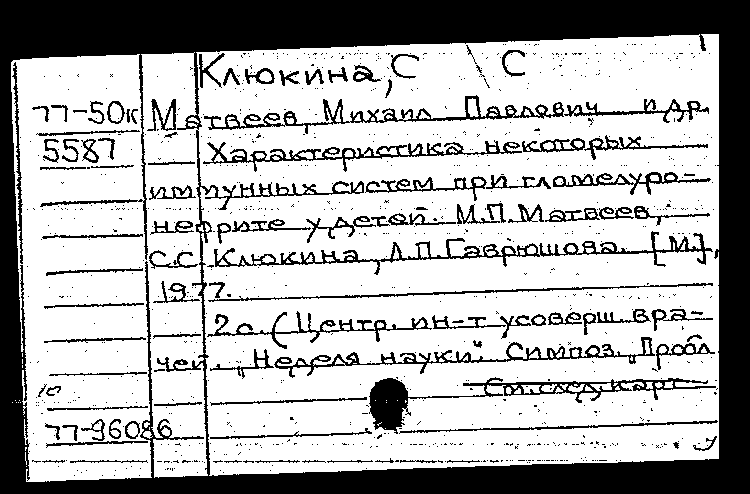 Клюкина, С С
77-50к Матвеев, Михаил Павлович и др.
5587 Характеристика некоторых
иммунных систем при гломелуро-
нефрите у детей. М.П.Матвеев,
С.С. Клюкина, Л.П.Гаврюшова. [М.],
1977.
2 с. (Центр. ин-т усоверш. вра-
чей. „Неделя науки". Симпоз. „Пробл
10 См.след.карт
77-96086